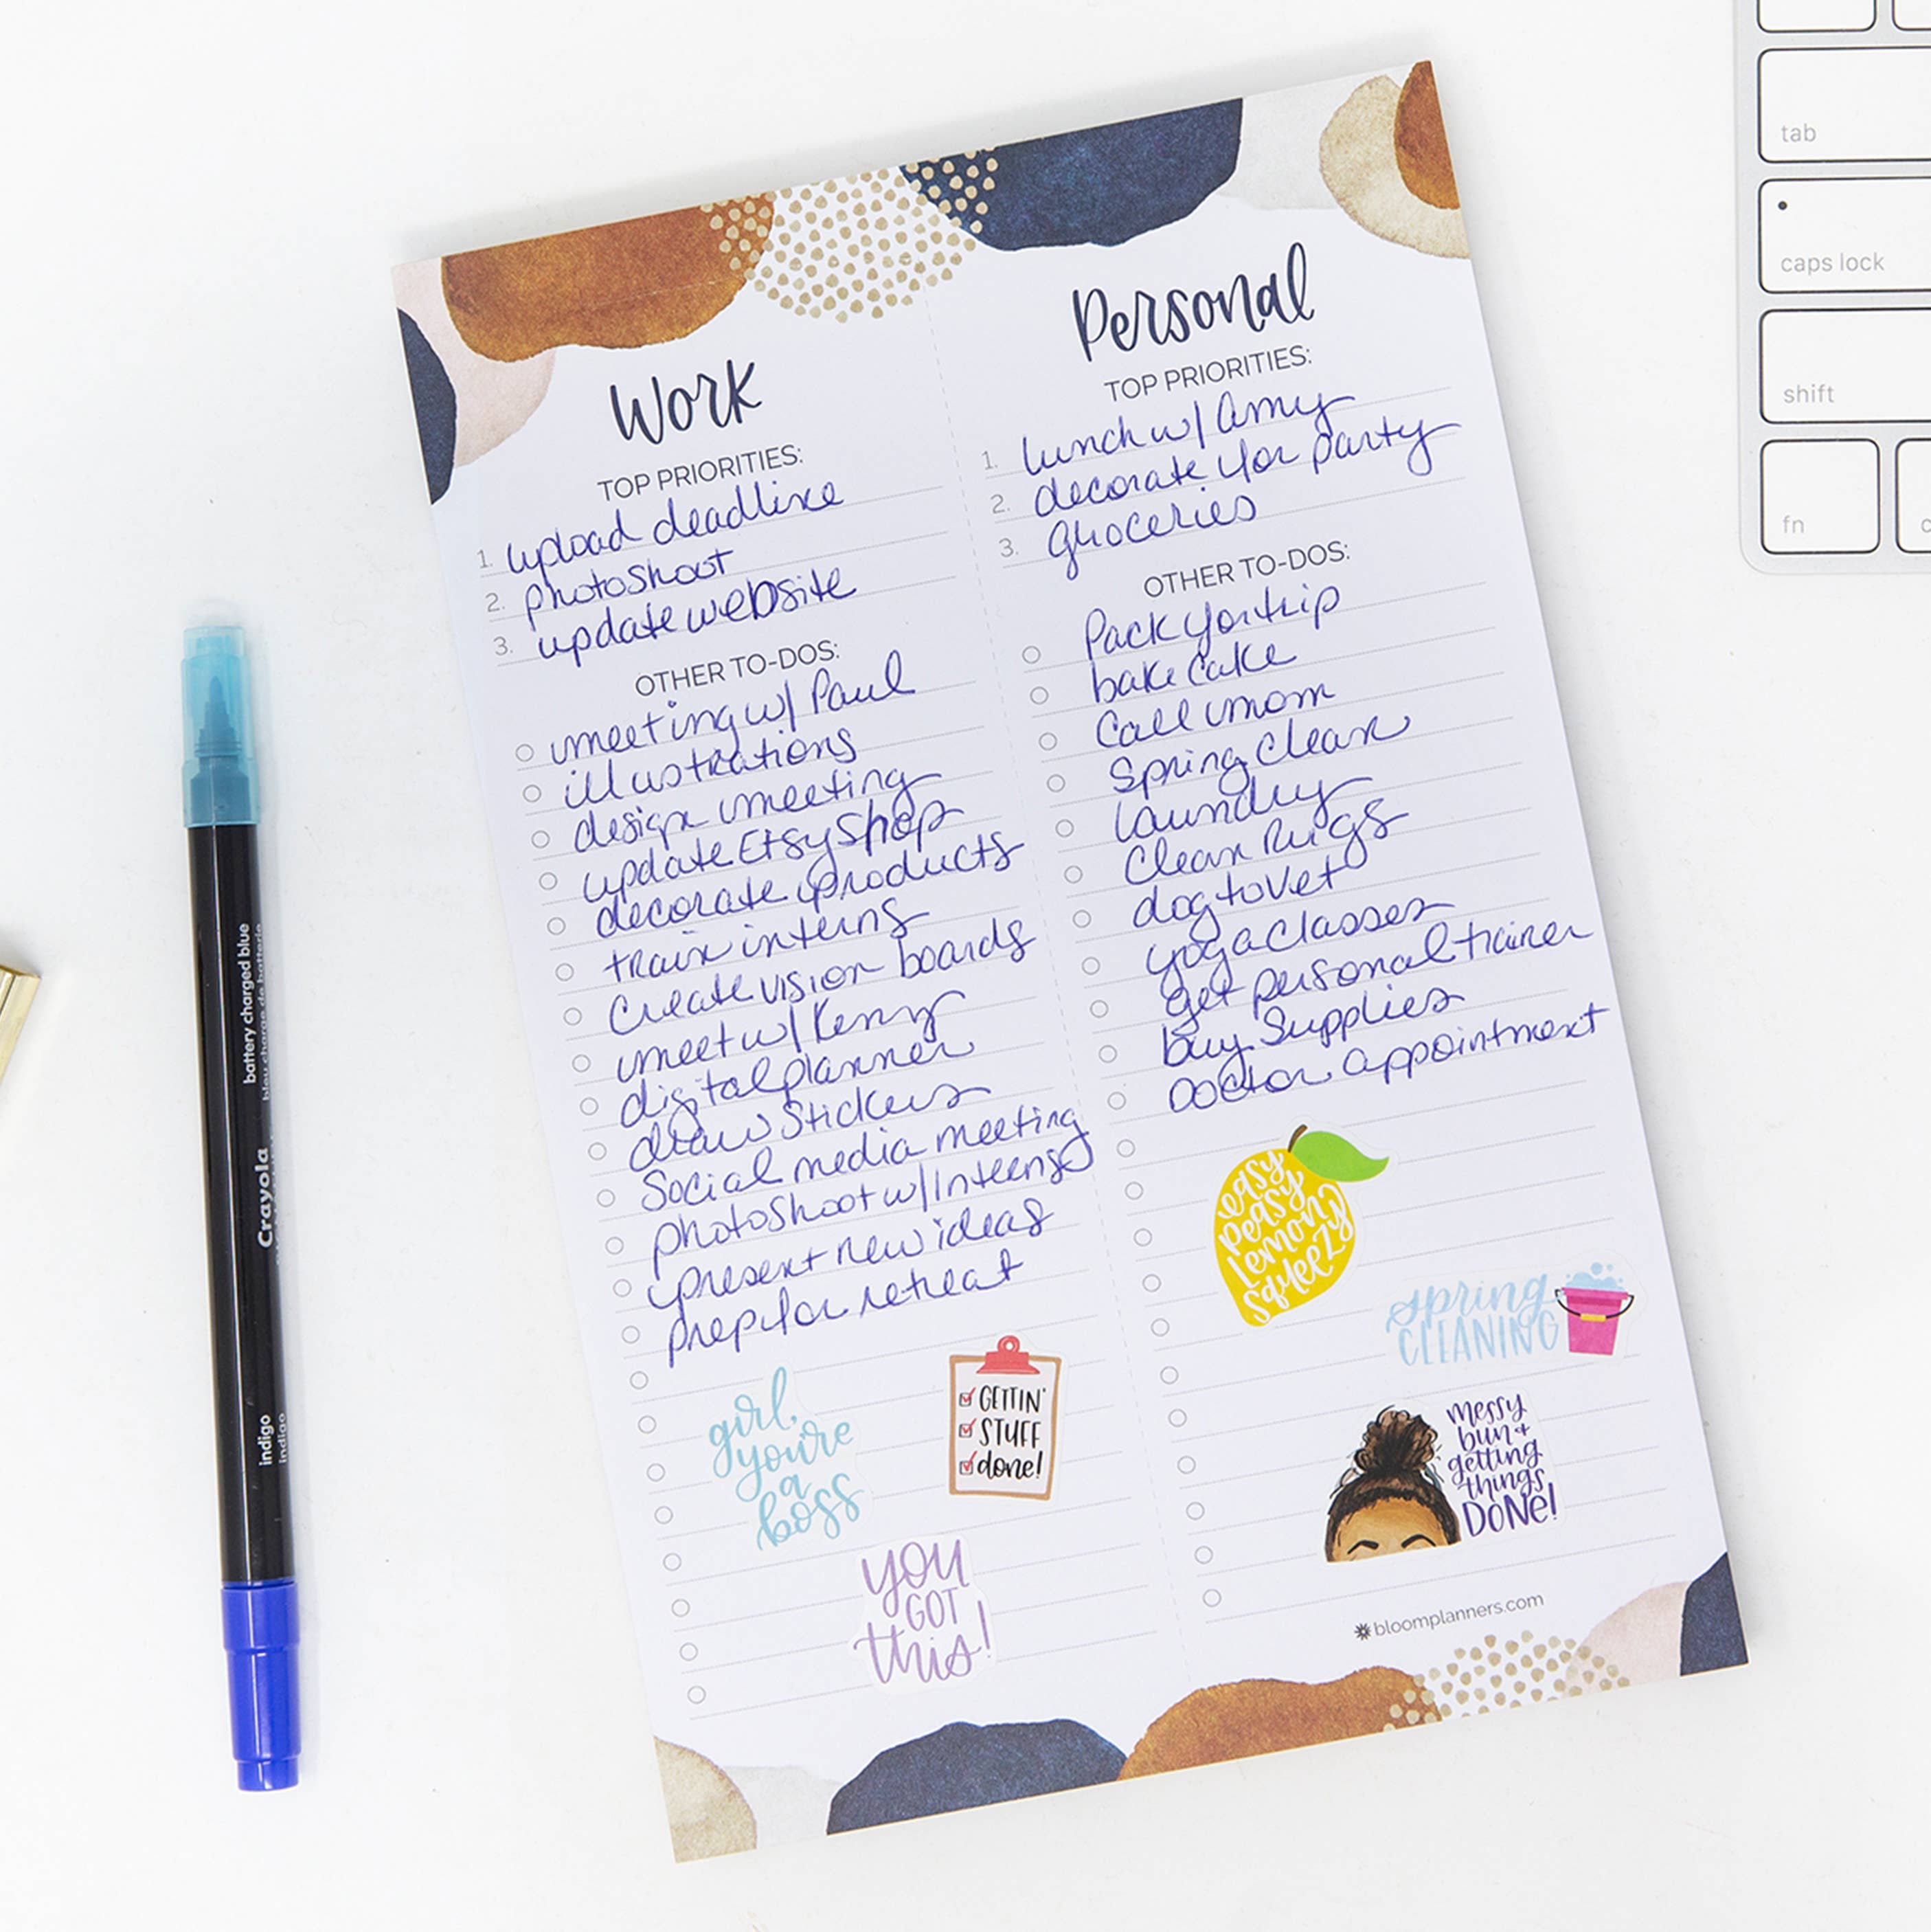 Work
TOP PRIORITIES:
1. upload deadline
2. photoshoot
3. update website
OTHER TO-DOS:
meeting w/ Paul
illustrations
design meeting
update Etsy Shop
decorate products
train interns
Create vision boards
meet w/ Kenny
digital planner
draw Stickers
Social media meeting
photoshoot w/ Interns
present new ideas
prep for retreat
girl,
you're
a
boss
GETTIN'
STUFF
done!
you
GOT
this!
Personal
TOP PRIORITIES:
1. lunch w/ Amy
2. decorate for party
3. groceries
OTHER TO-DOS:
Pack for trip
bake cake
Call mom
Spring Clean
laundry
Clean Rugs
dog to Vet
yoga classes
get personal trainer
buy Supplies
Doctor appointment
easy
peasy
lemon
squeezy
spring
CLEANING
messy
bun +
getting
things
DONE!
bloomplanners.com
battery charged blue
Crayola
indigo
indigo
tab
caps lock
shift
fn